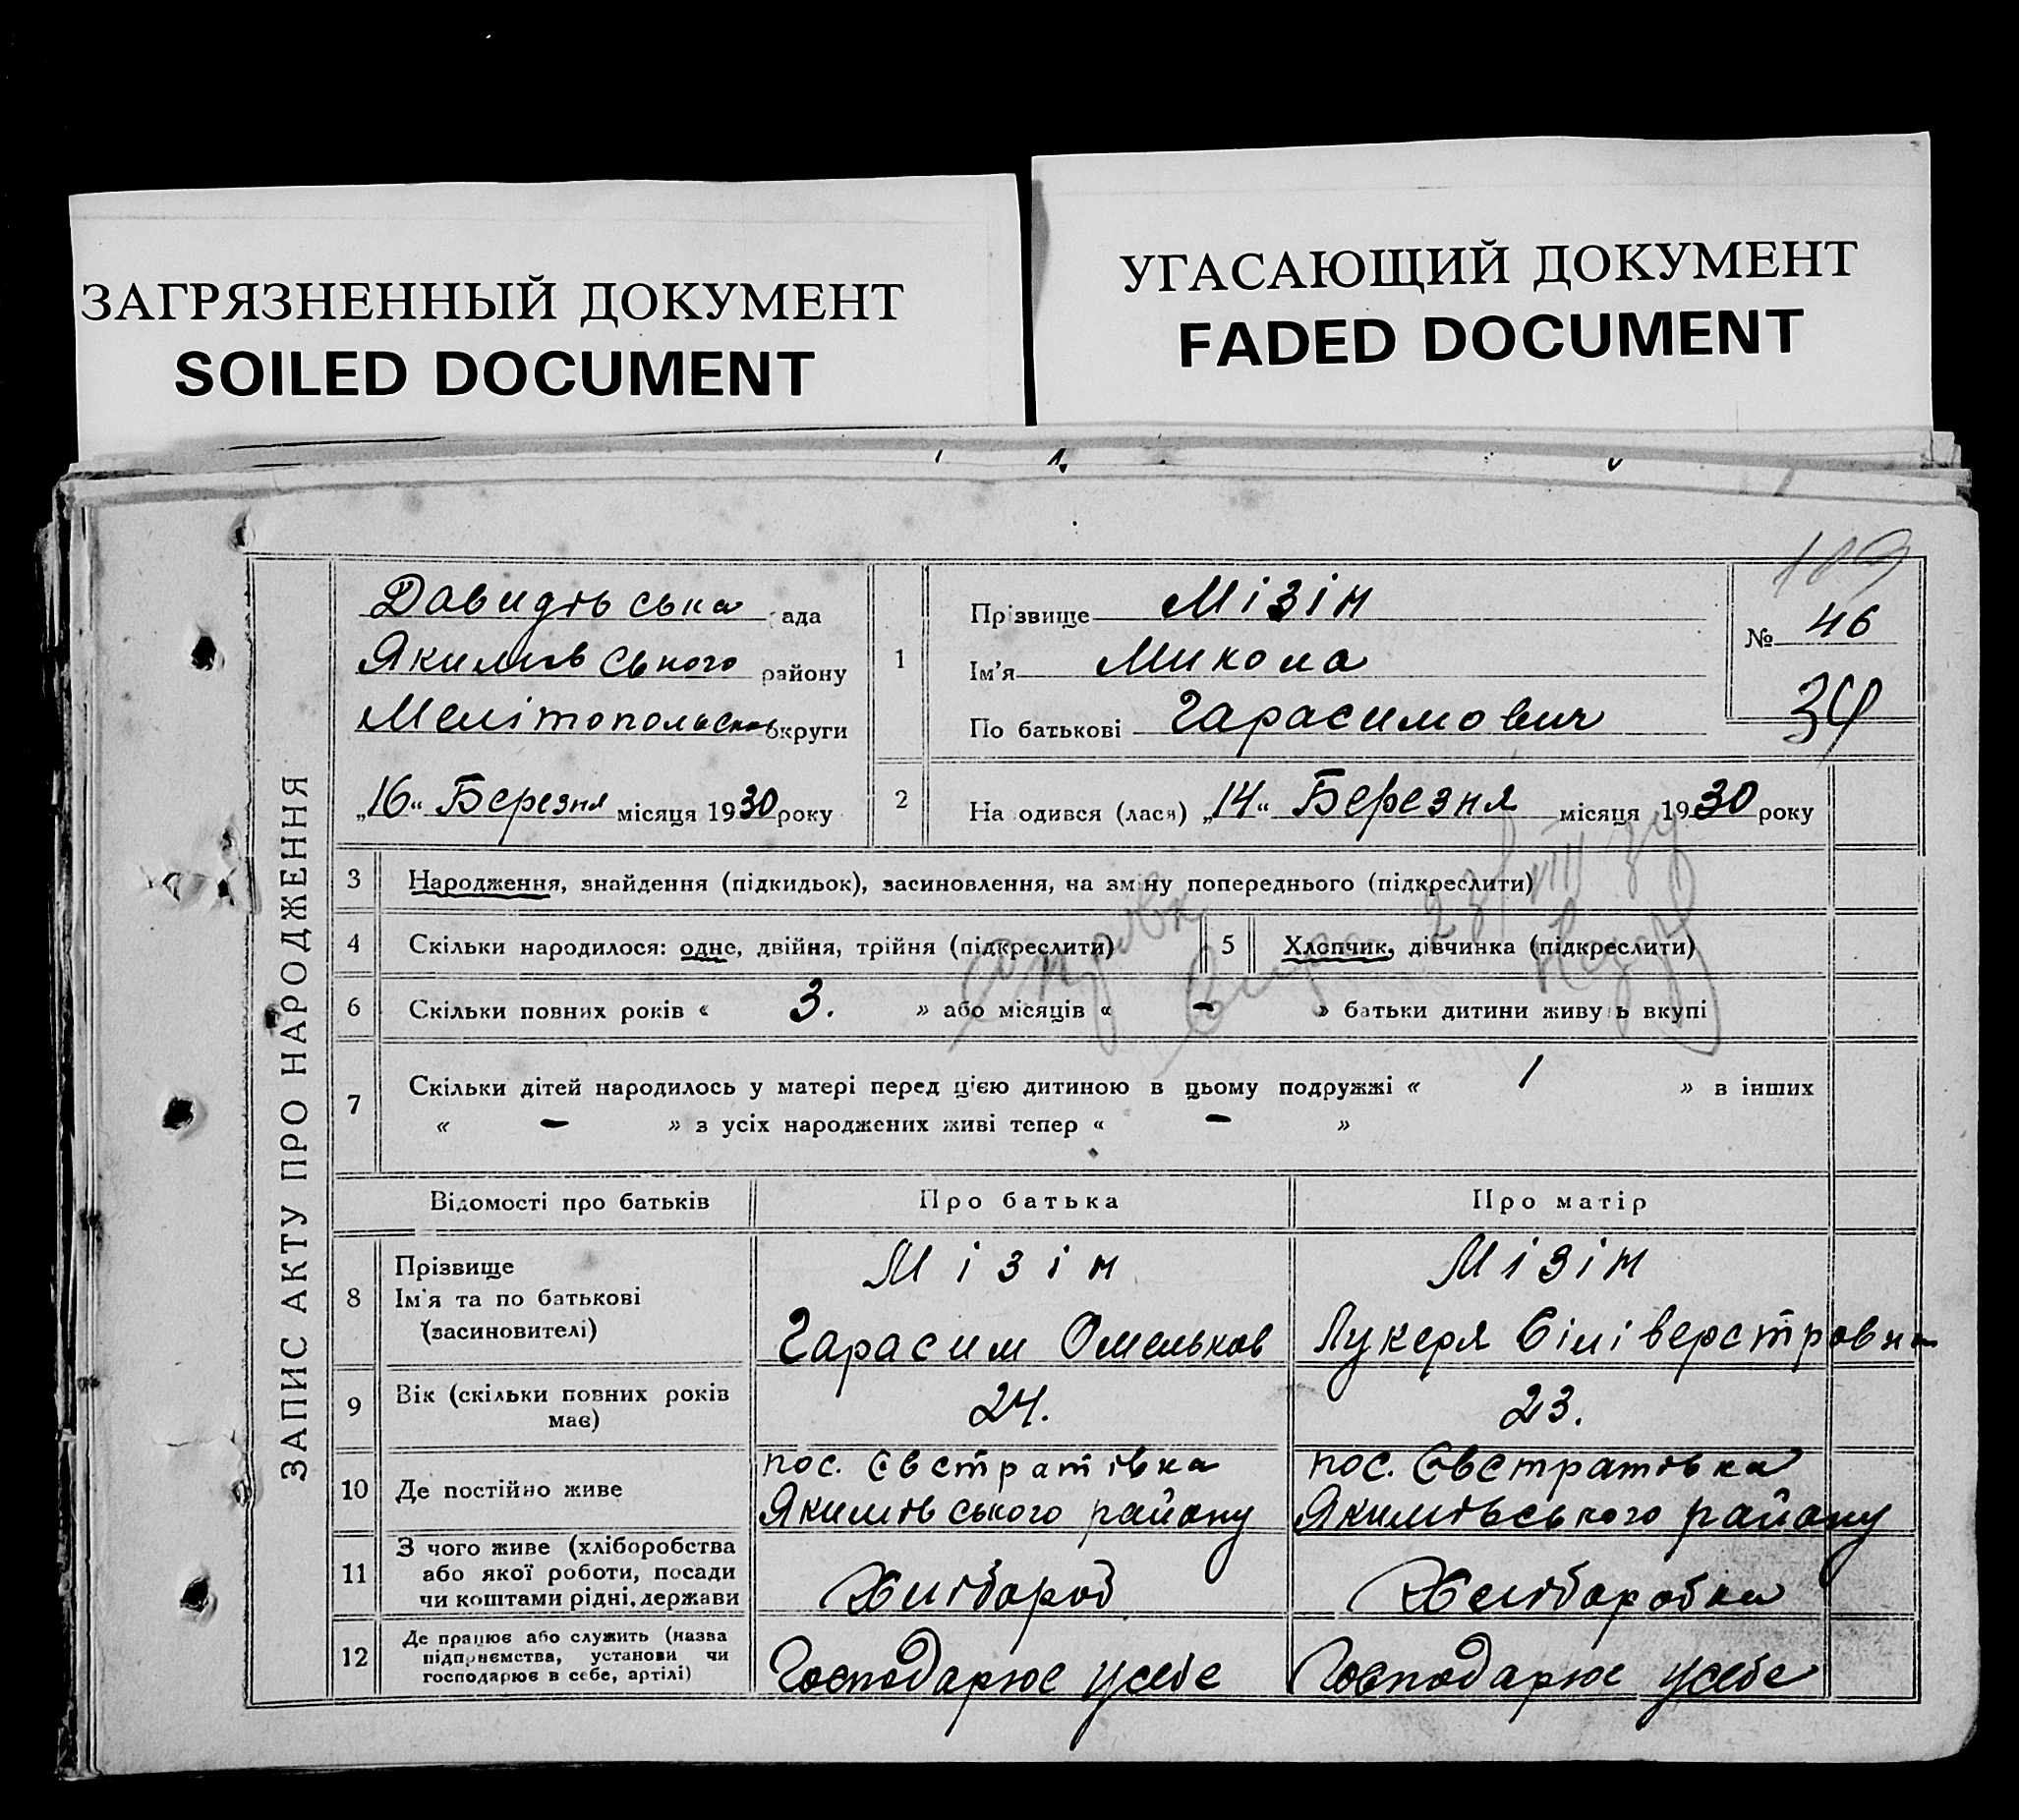 ЗАГРЯЗНЕННЫЙ ДОКУМЕНТ
SOILED DOCUMENT
УГАСАЮЩИЙ ДОКУМЕНТ
FADED DOCUMENT
ЗАПИС АКТУ ПРО НАРОДЖЕННЯ
Давидівська рада
Якимівського району
Мелітопольської округи
„16“ Березня місяця 1930 року
1
Прізвище Мізін
Ім'я Микола
По батькові Гарасимович
109
№ 46
39
2
Народився (лася) „14“ Березня місяця 1930 року
3 Народження, знайдення (підкидьок), засиновлення, на зміну попереднього (підкреслити)
4 Скільки народилося: одне, двійня, трійня (підкреслити)
5 Хлопчик, дівчинка (підкреслити)
6 Скільки повних років « 3. » або місяців « – » батьки дитини живуть вкупі
7 Скільки дітей народилось у матері перед цією дитиною в цьому подружжі « 1 » в інших
« – » з усіх народжених живі тепер « – »
Відомості про батьків Про батька Про матір
8 Прізвище
Ім'я та по батькові
(засиновителі)
Мізін
Гарасим Омельков
Мізін
Лукеря Сіліверстровна
9 Вік (скільки повних років
має)
24. 23.
10 Де постійно живе
пос. Євстратівка
Якимівського району
пос. Євстратівка
Якимівського району
11 З чого живе (хліборобства
або якої роботи, посади
чи коштами рідні, держави
Хлібороб Хліборобка
12 Де працює або служить (назва
підприємства, установи чи
господарює в себе, артілі)
Господарює усебе Господарює усебе